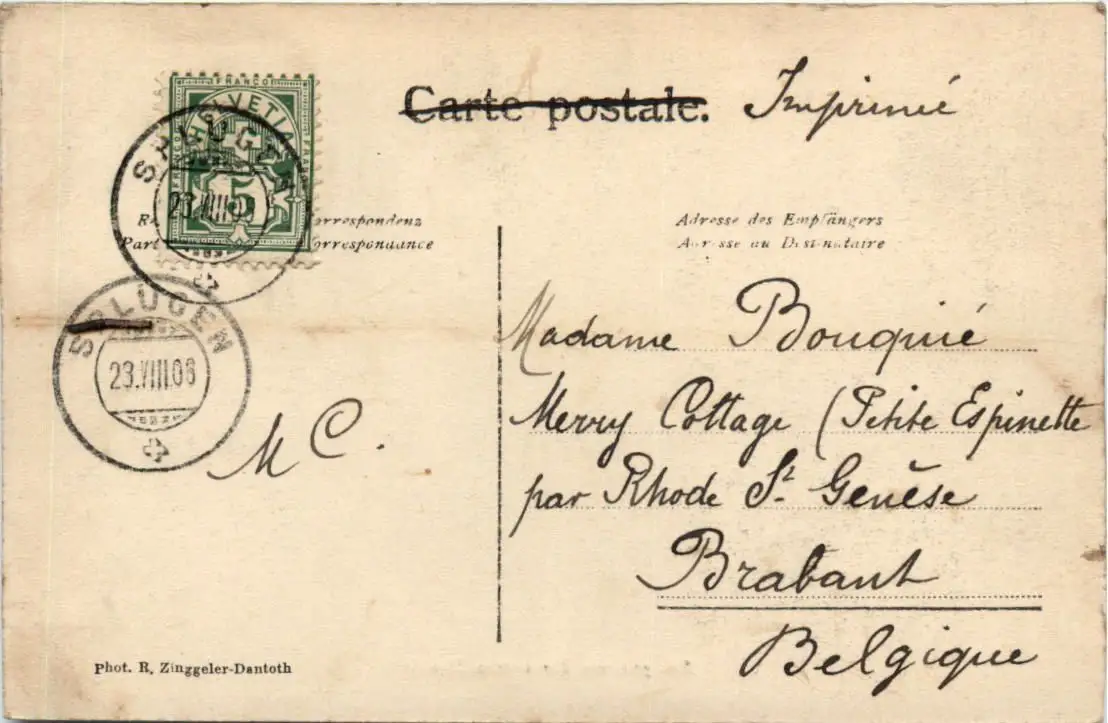 FRANCO
HELVETIA
FRANCO
5
SPLÜGEN
23.VIII.06
Carte postale.
Imprimé
Correspondenz
Part Correspondance
Adresse des Empfängers
Adresse du Destinataire
SPLÜGEN
23.VIII.06
M C.
Madame Bouquié
Merry Cottage (Petite Espinette
par Rhode St. Genèse
Brabant
Belgique
Phot. R. Zinggeler-Dantoth